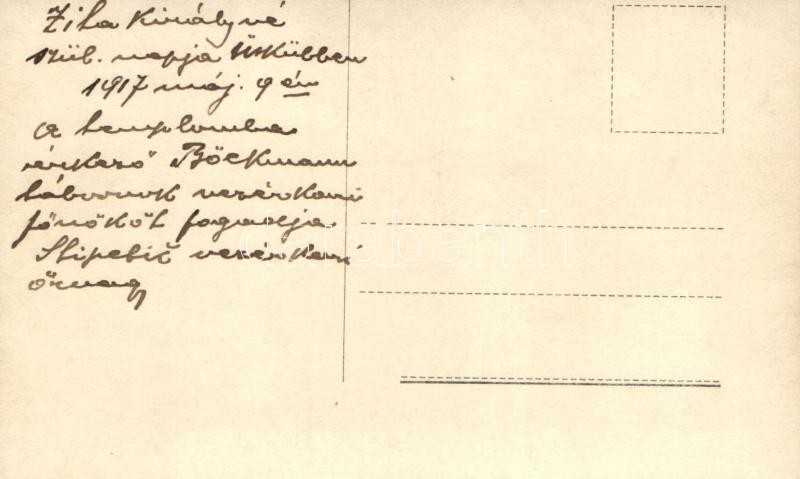 Zita Királyné
szül. napja Üsküben
1917 máj. 9 én
a templomba
érkező Böckmann
tábornok vezérkari
főnököt fogadja
Stipetić vezérkari
őrnagy
darabanth